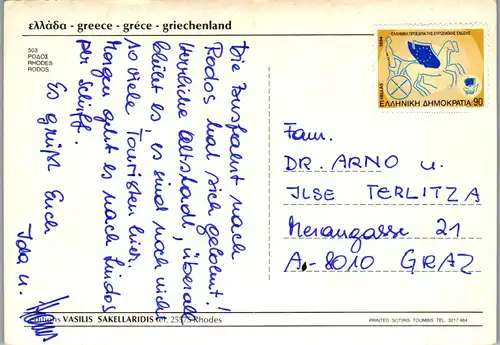 ελλάδα - greece - gréce - griechenland
503
ΡΟΔΟΣ
RHODES
RODOS
Die Busfahrt nach
Rodos hat sich gelohnt!
Herrliche Altstadt, überall
blüht es es sind noch nicht
so viele Touristen hier.
Morgen geht es nach Lindos
per Schiff.
Es grüßt Euch
Ida u.
Hans
ΕΛΛΗΝΙΚΗ ΠΡΟΕΔΡΙΑ ΤΗΣ ΕΥΡΩΠΑΪΚΗΣ ΕΝΩΣΗΣ
1994
HELLAS
ΕΛΛΗΝΙΚΗ ΔΗΜΟΚΡΑΤΙΑ 90
Fam.
DR. ARNO u.
ILSE TERLITZA
Merangasse 21
A-8010 GRAZ
editions VASILIS SAKELLARIDIS tel. 25575 Rhodes
PRINTED SOTIRIS TOUMBIS TEL. 3217.484